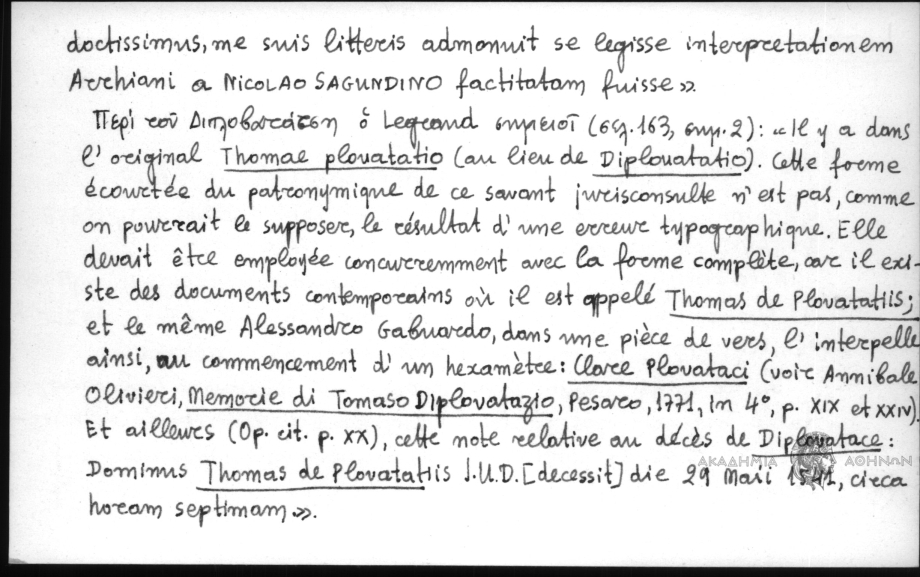 doctissimus, me suis litteris admonuit se legisse interpretationem
Arrhiani a NICOLAO SAGUNDINO factitatam fuisse».
Περὶ τοῦ Διπλοβατάτση ὁ Legrand σημειοῖ (σελ. 163, σημ. 2): «Il y a dans
l'original Thomae plouatatio (au lieu de Diplouatatio). Cette forme
écourtée du patronymique de ce savant jurisconsulte n'est pas, comme
on pourrait le supposer, le résultat d'une erreur typographique. Elle
devait être employée concurremment avec la forme complète, car il exi-
ste des documents contemporains où il est appelé Thomas de Plovatatiis;
et le même Alessandro Gabuardo, dans une pièce de vers, l'interpelle
ainsi, au commencement d'un hexamètre: Clare Plovataci (voir Annibale
Olivieri, Memorie di Tomaso Diplovatazio, Pesaro, 1771, in 4°, p. XIX et XXIV).
Et ailleurs (Op. cit. p. XX), cette note relative au décès de Diplovatace:
Dominus Thomas de Plovatatiis J.U.D. [decessit] die 29 Maii 1541, circa
horam septimam».
ΑΚΑΔΗΜΙΑ ΑΘΗΝΩΝ